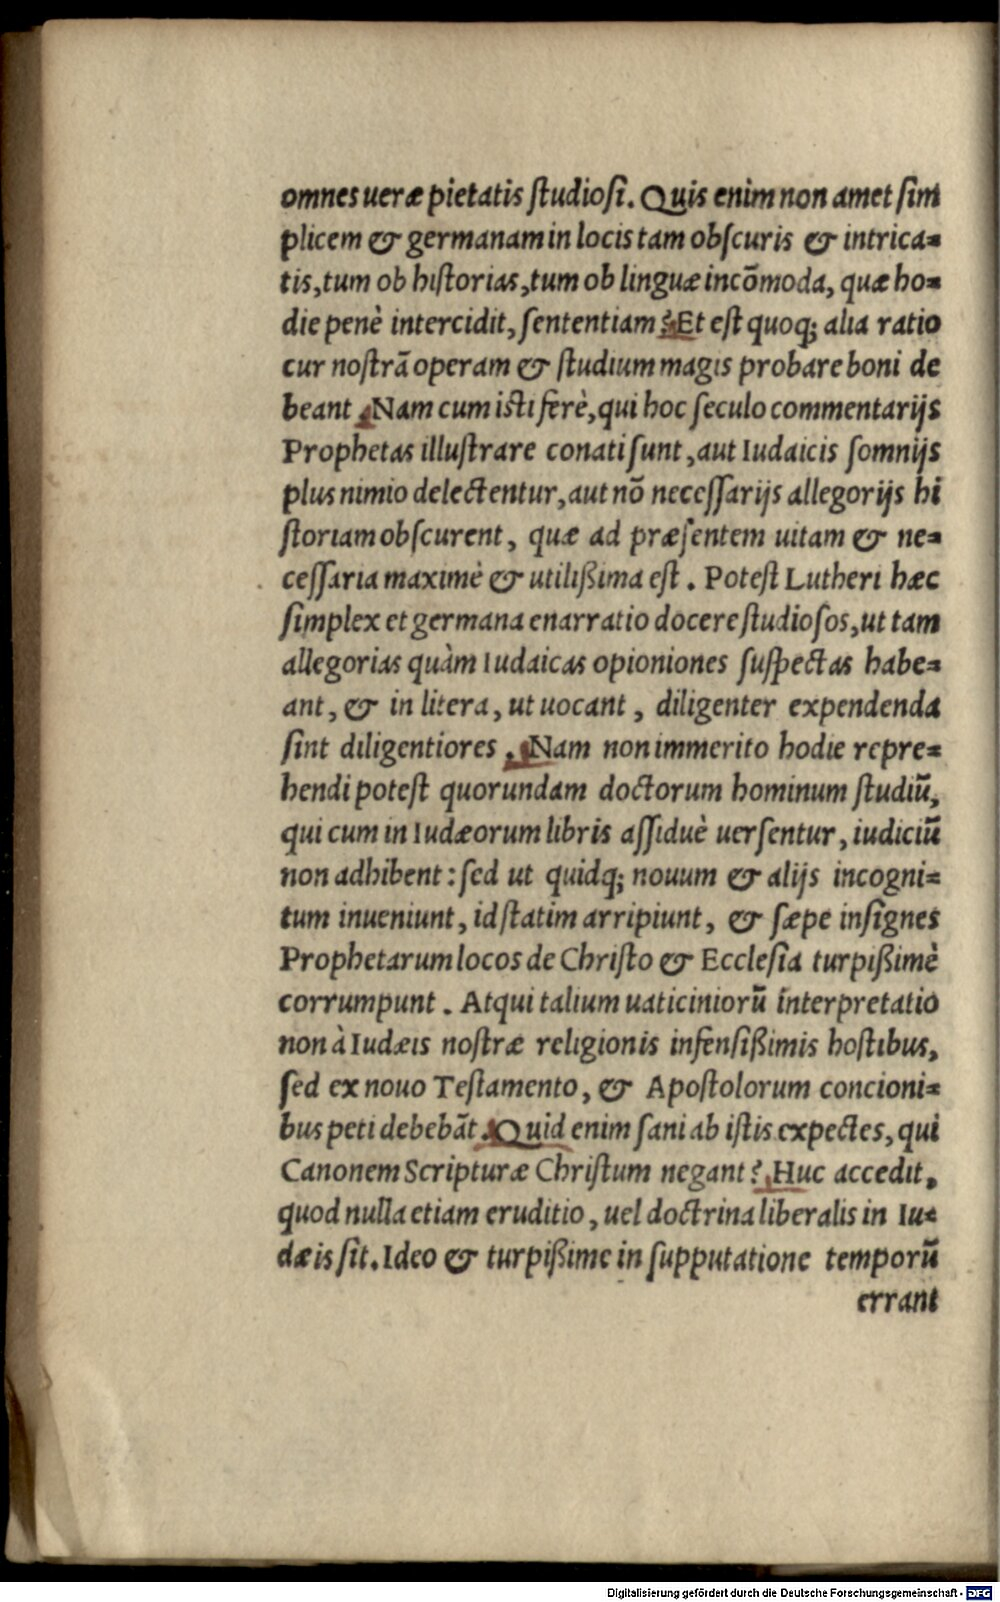 omnes ueræ pietatis ſtudioſi. Quis enim non amet ſim
plicem & germanam in locis tam obſcuris & intrica=
tis, tum ob hiſtorias, tum ob linguæ incõmoda, quæ ho=
die penè intercidit, ſententiam? Et eſt quoq; alia ratio
cur noſtrã operam & ſtudium magis probare boni de
beant. Nam cum iſti ferè, qui hoc ſeculo commentarijs
Prophetas illuſtrare conati ſunt, aut Iudaicis ſomnijs
plus nimio delectentur, aut nõ neceſſarijs allegorijs hi
ſtoriam obſcurent, quæ ad præſentem uitam & ne=
ceſſaria maximè & utilißima eſt. Poteſt Lutheri hæc
ſimplex et germana enarratio docere ſtudioſos, ut tam
allegorias quàm Iudaicas opioniones ſuſpectas habe=
ant, & in litera, ut uocant, diligenter expendenda
ſint diligentiores. Nam non immerito hodie repre=
hendi poteſt quorundam doctorum hominum ſtudiũ,
qui cum in Iudæorum libris aſſiduè uerſentur, iudiciũ
non adhibent: ſed ut quidq; nouum & alijs incogni=
tum inueniunt, id ſtatim arripiunt, & ſæpe inſignes
Prophetarum locos de Chriſto & Eccleſia turpißimè
corrumpunt. Atqui talium uaticiniorũ interpretatio
non à Iudæis noſtræ religionis infenſißimis hoſtibus,
ſed ex nouo Teſtamento, & Apoſtolorum concioni=
bus peti debebãt. Quid enim ſani ab iſtis expectes, qui
Canonem Scripturæ Chriſtum negant? Huc accedit,
quod nulla etiam eruditio, uel doctrina liberalis in Iu=
dæis ſit. Ideo & turpißime in ſupputatione temporũ
errant
Digitalisierung gefördert durch die Deutsche Forschungsgemeinschaft - DFG